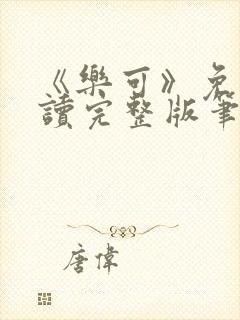 《樂可》免
讀完整版筆
唐偉